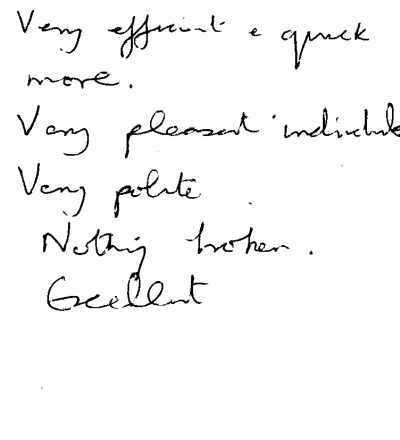 Very efficient & quick
move.
Very pleasant individuals
Very polite
Nothing broken.
Excellent